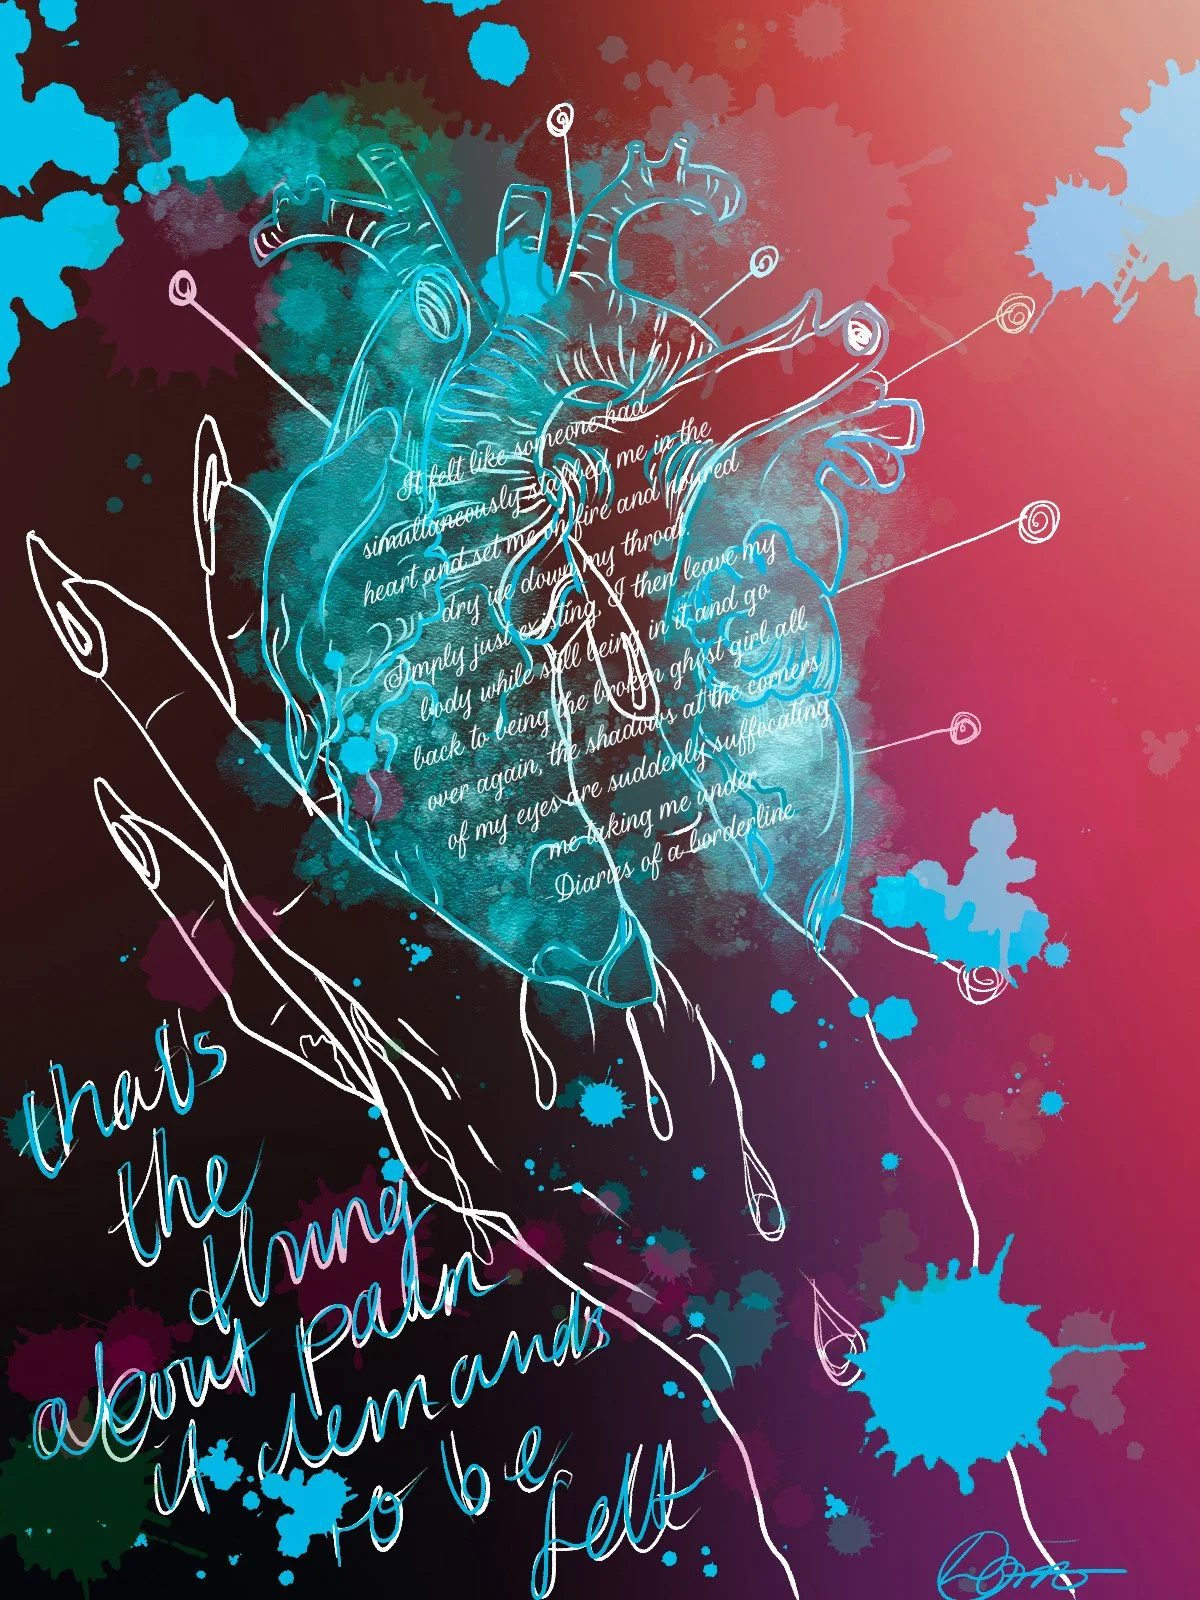 It felt like someone had
simultaneously stabbed me in the
heart and set me on fire and poured
dry ice down my throat.
Simply just existing, I then leave my
body while still being in it and go
back to being the broken ghost girl all
over again, the shadows at the corners
of my eyes are suddenly suffocating
me taking me under
Diaries of a borderline
that's
the
thing
about pain
it demands
to be
felt